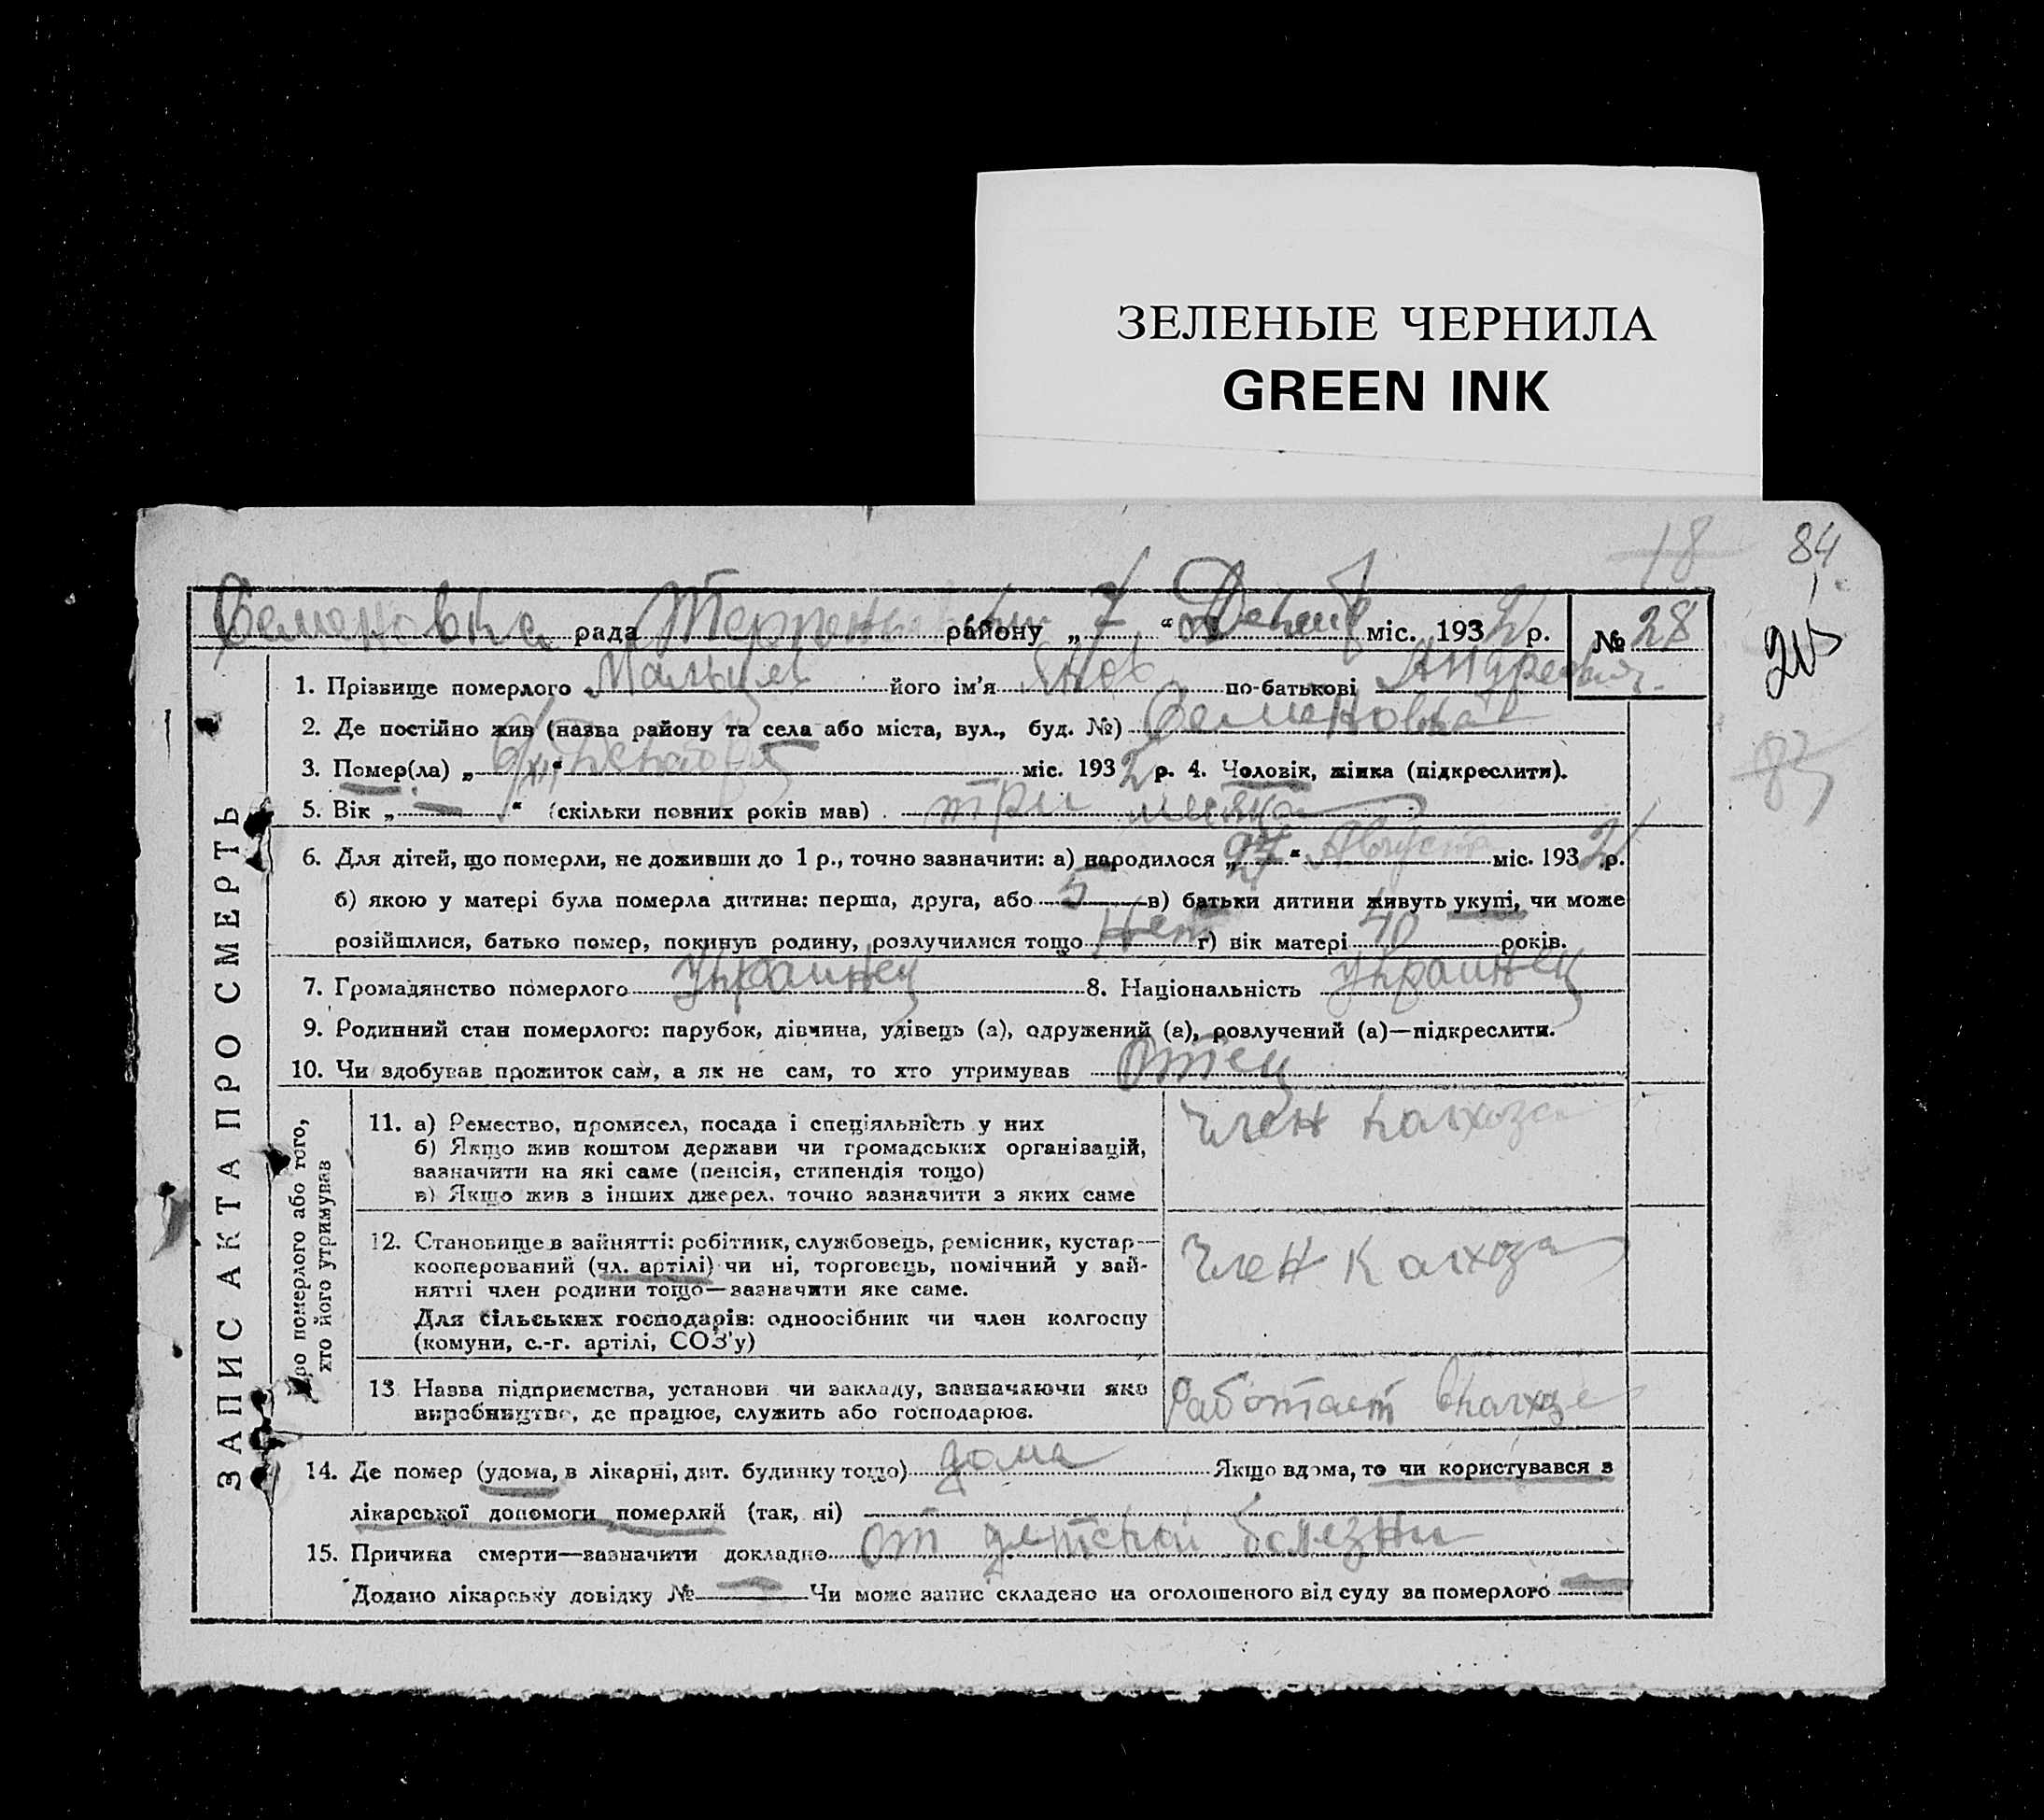 ЗЕЛЕНЫЕ ЧЕРНИЛА
GREEN INK
18
84
Семеновка рада району „ 7 “ міс. 1932 р. № 28
83
1. Прізвище померлого його ім'я Яков по-батькові Андреевич.
2. Де постійно жив (назва району та села або міста, вул., буд. №) Семеновка
3. Помер(ла) „ 6/XII “ міс. 1932 р. 4. Чоловік, жінка (підкреслити).
5. Вік „ — “ (скільки повних років мав) . три
6. Для дітей, що померли, не доживши до 1 р., точно зазначити: а) народилося „ “ Августа міс. 1932 р.
б) якою у матері була померла дитина: перша, друга, або 5 в) батьки дитини живуть укупі, чи може
розійшлися, батько помер, покинув родину, розлучилися тощо Нет г) вік матері 40 років.
7. Громадянство померлого Украинец 8. Національність Украинец
9. Родинний стан померлого: парубок, дівчина, удівець (а), одружений (а), розлучений (а)—підкреслити.
10. Чи здобував прожиток сам, а як не сам, то хто утримував Отец
ЗАПИС АКТА ПРО СМЕРТЬ
померлого або того,
хто його утримував
11. а) Ремество, промисел, посада і спеціяльність у них
б) Якщо жив коштом держави чи громадських організацій,
зазначити на які саме (пенсія, стипендія тощо)
в) Якщо жив з інших джерел, точно зазначити з яких саме
Член Калхоза
12. Становище в зайнятті: робітник, службовець, ремісник, кустар—
кооперований (чл. артілі) чи ні, торговець, помічний у зай-
нятті член родини тощо—зазначити яке саме.
Для сільських господарів: одноосібник чи член колгоспу
(комуни, с.-г. артілі, СОЗ'у)
Член Калхоза
13 Назва підприємства, установи чи закладу, зазначаючи яке
виробництво, де працює, служить або господарює.
Работает вкалхозе
14. Де помер (удома, в лікарні, дит. будинку тощо) дома Якщо вдома, то чи користувався з
лікарської допомоги померлий (так, ні)
15. Причина смерти—зазначити докладно от детской болезни
Додано лікарську довідку № — Чи може запис складено на оголошеного від суду за померлого —